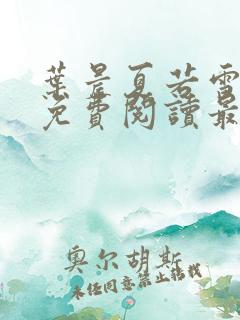 葉晨夏若雪
免費閱讀最
奥尔胡斯
未经同意禁止转载